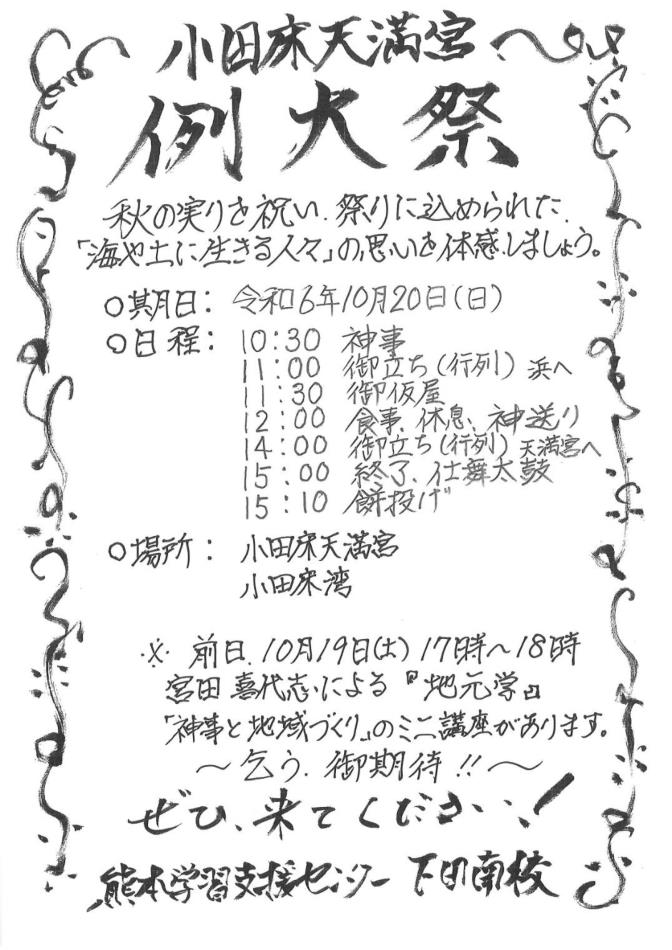 小田床天満宮
例大祭
秋の実りを祝い、祭りに込められた、
「海や土に生きる人々」の思いを体感しましょう。
○期日： 令和6年10月20日(日)
○日程： 10:30 神事
11:00 御立ち(行列) 浜へ
11:30 御仮屋
12:00 食事、休息、神送り
14:00 御立ち(行列) 天満宮へ
15:00 終了、仕舞太鼓
15:10 餅投げ
○場所： 小田床天満宮
小田床湾
※ 前日、10月19日(土) 17時～18時
宮田 喜代志による『地元学』
「神事と地域づくり」のミニ講座があります。
～乞う、御期待!!～
ぜひ、来てください！
熊本学習支援センター 下田南校